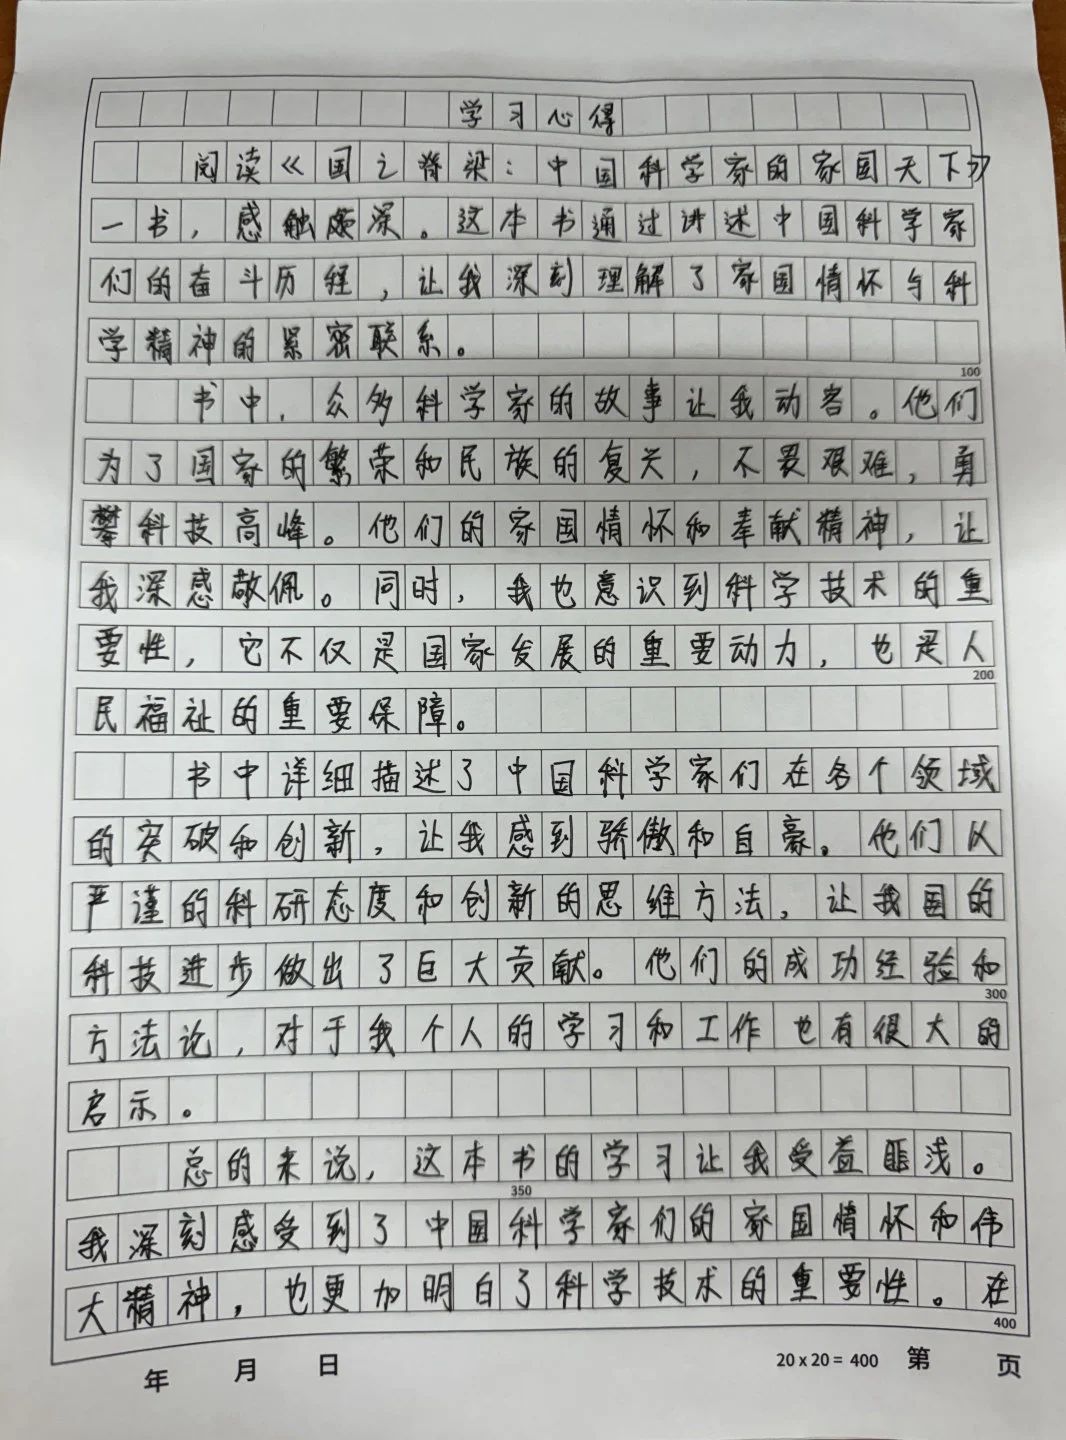 学习心得
阅读《国之脊梁：中国科学家的家国天下》
一书，感触颇深。这本书通过讲述中国科学家
们的奋斗历程，让我深刻理解了家国情怀与科
学精神的紧密联系。
100
书中，众多科学家的故事让我动容。他们
为了国家的繁荣和民族的复兴，不畏艰难，勇
攀科技高峰。他们的家国情怀和奉献精神，让
我深感敬佩。同时，我也意识到科学技术的重
要性，它不仅是国家发展的重要动力，也是人
200
民福祉的重要保障。
书中详细描述了中国科学家们在各个领域
的突破和创新，让我感到骄傲和自豪。他们以
严谨的科研态度和创新的思维方法，让我国的
科技进步做出了巨大贡献。他们的成功经验和
300
方法论，对于我个人的学习和工作也有很大的
启示。
总的来说，这本书的学习让我受益匪浅。
350
我深刻感受到了中国科学家们的家国情怀和伟
大精神，也更加明白了科学技术的重要性。在
400
年 月 日 20 x 20 = 400 第 页